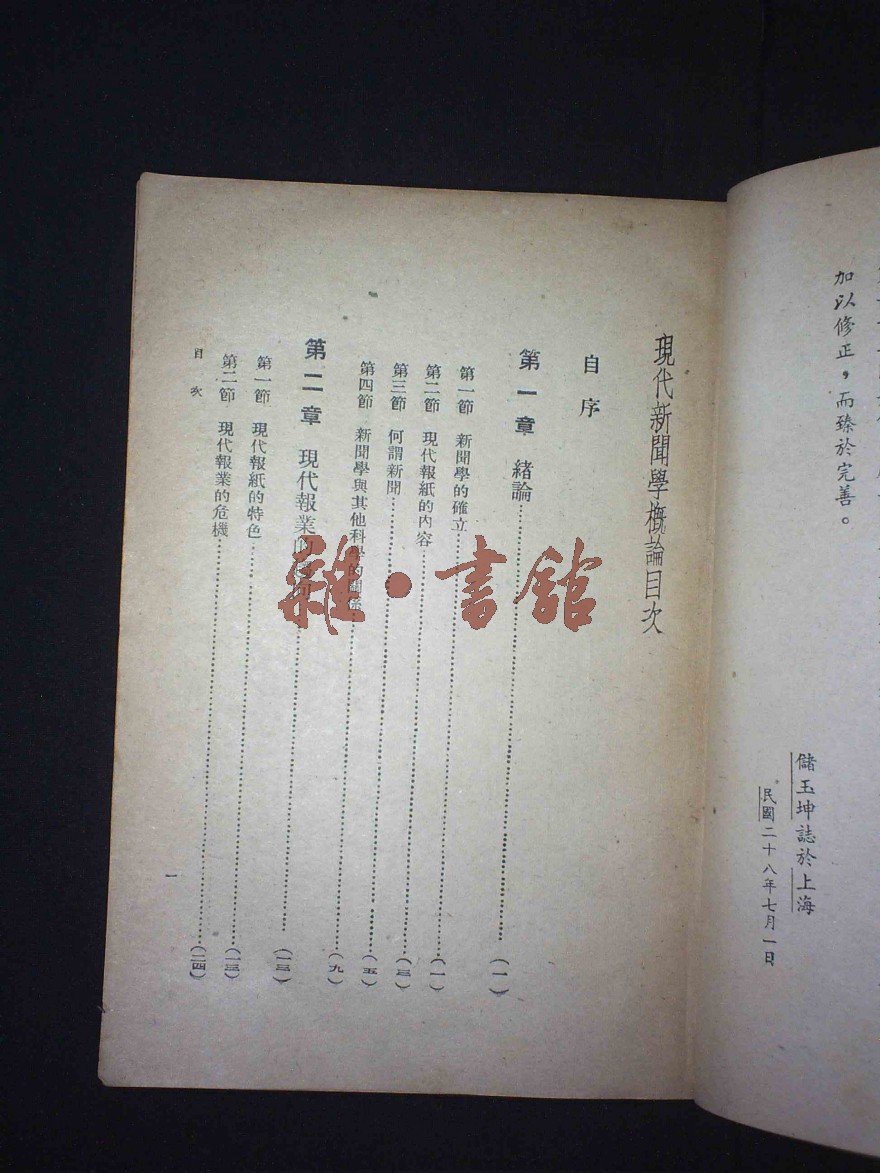 加以修正，而臻於完善。
儲玉坤誌於上海
民國二十八年七月一日
現代新聞學概論目次
自序
第一章 緒論……(一)
第一節 新聞學的確立……(一)
第二節 現代報紙的內容……(三)
第三節 何謂新聞……(五)
第四節 新聞學與其他科學的關係……(九)
第二章 現代報業……(一三)
第一節 現代報紙的特色……(一三)
第二節 現代報業的危機……(二四)
目次
一
雜·書館